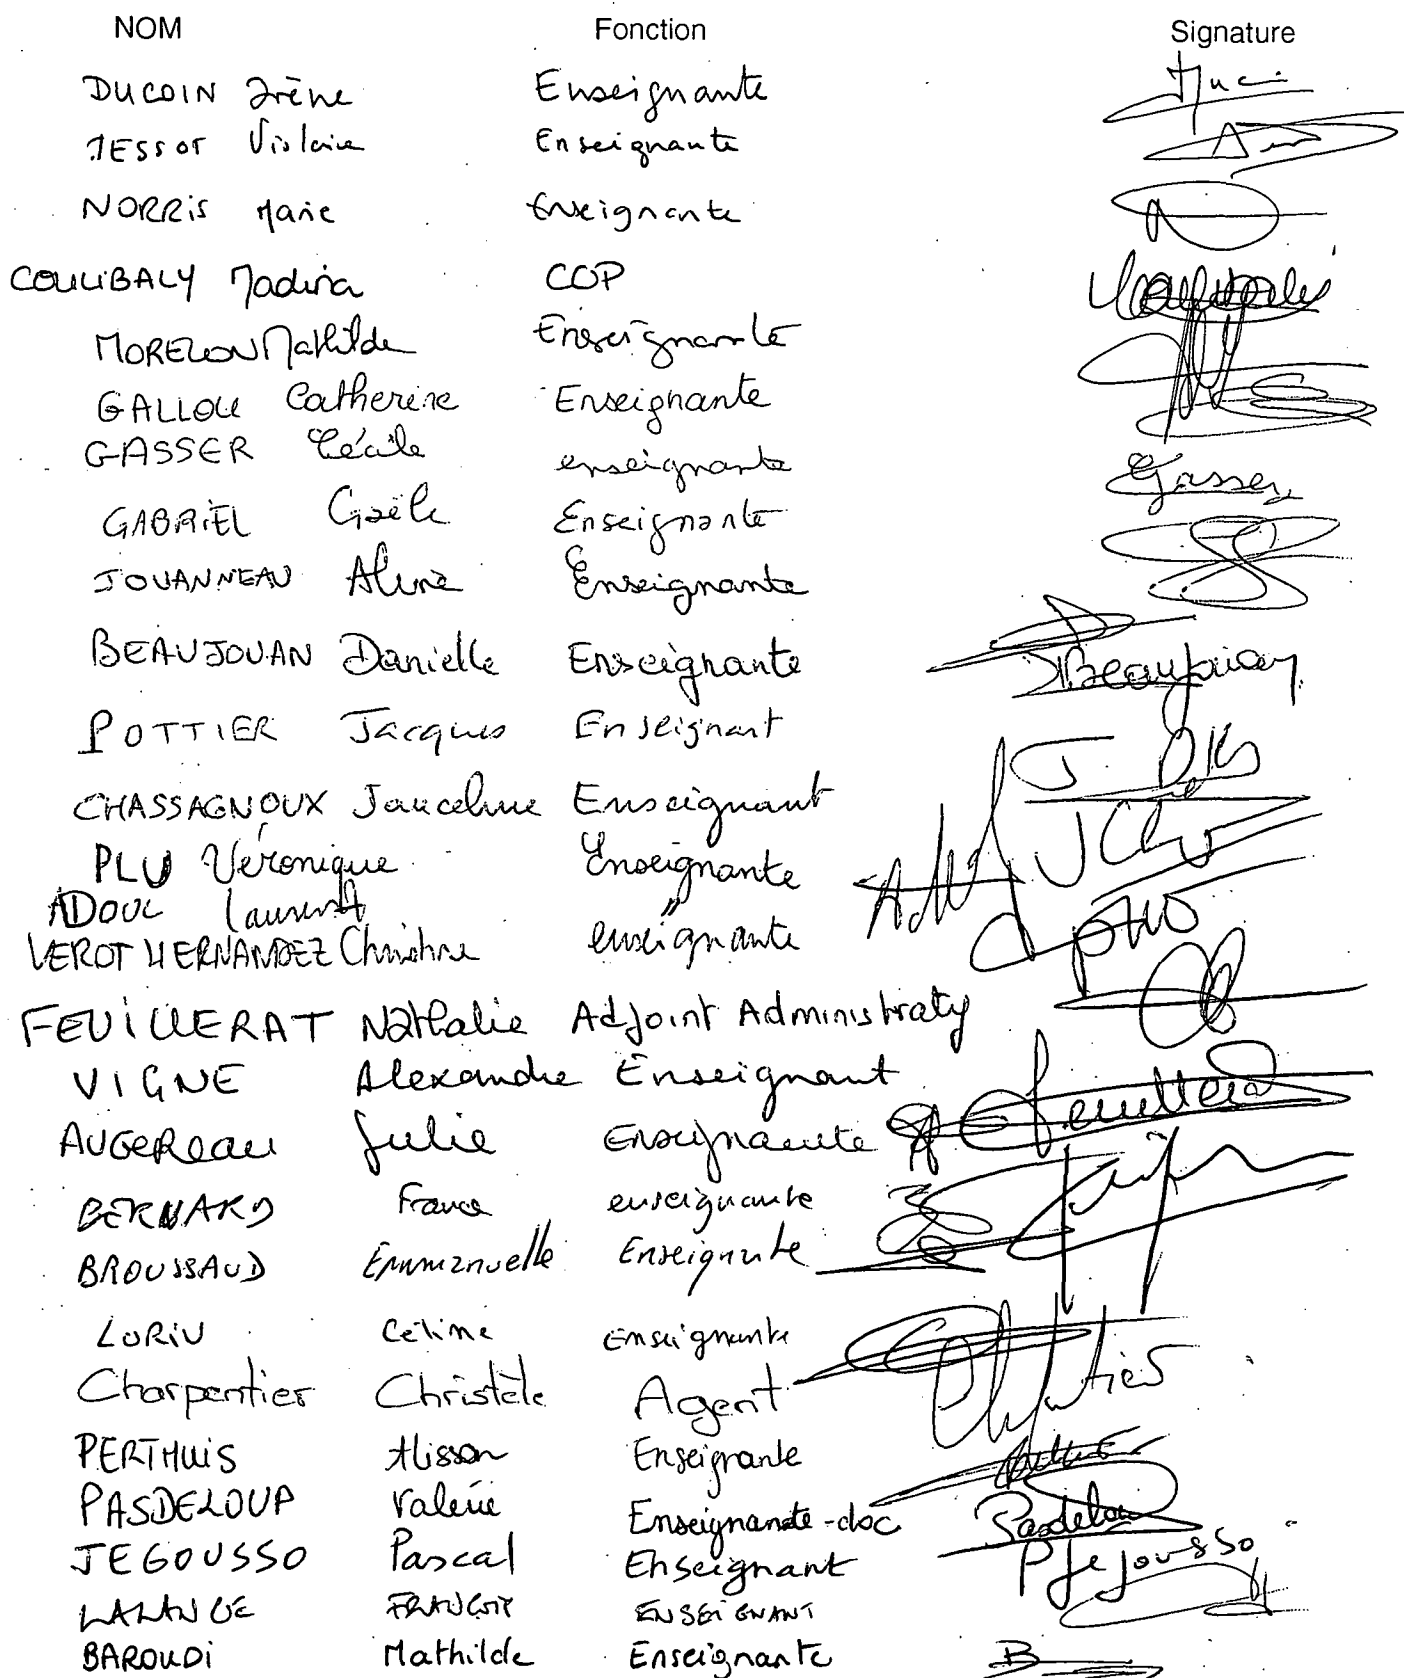 NOM Fonction Signature
DUCOIN Irène Enseignante
TESSOT Violaine Enseignante
NORRIS Marie Enseignante
COULIBALY Madina COP
MORELON Mathilde Enseignante
GALLOU Catherine Enseignante
GASSER Cécile enseignante Gasser
GABRIEL Gaële Enseignante
JOUANNEAU Aline Enseignante
BEAUJOUAN Danielle Enseignante DBeaujouan
POTTIER Jacques Enseignant
CHASSAGNOUX Jouceline Enseignant
PLU Véronique Enseignante
ADOUL Laurent "
VEROT HERNANDEZ Christine enseignante
FEUILLERAT Nathalie Adjoint Administratif
VIGNE Alexandre Enseignant
AUGEREAU Julie Enseignante
BERNARD France enseignante
BROUSSAUD Emmanuelle Enseignante
LORIU Céline Enseignante
Charpentier Christèle Agent
PERTHUIS Alisson Enseignante
PASDELOUP Valérie Enseignante-doc Pasdeloup
JEGOUSSO Pascal Enseignant P Jegousso
LALANGE FRANÇOIS ENSEIGNANT
BAROUDI Mathilde Enseignante B